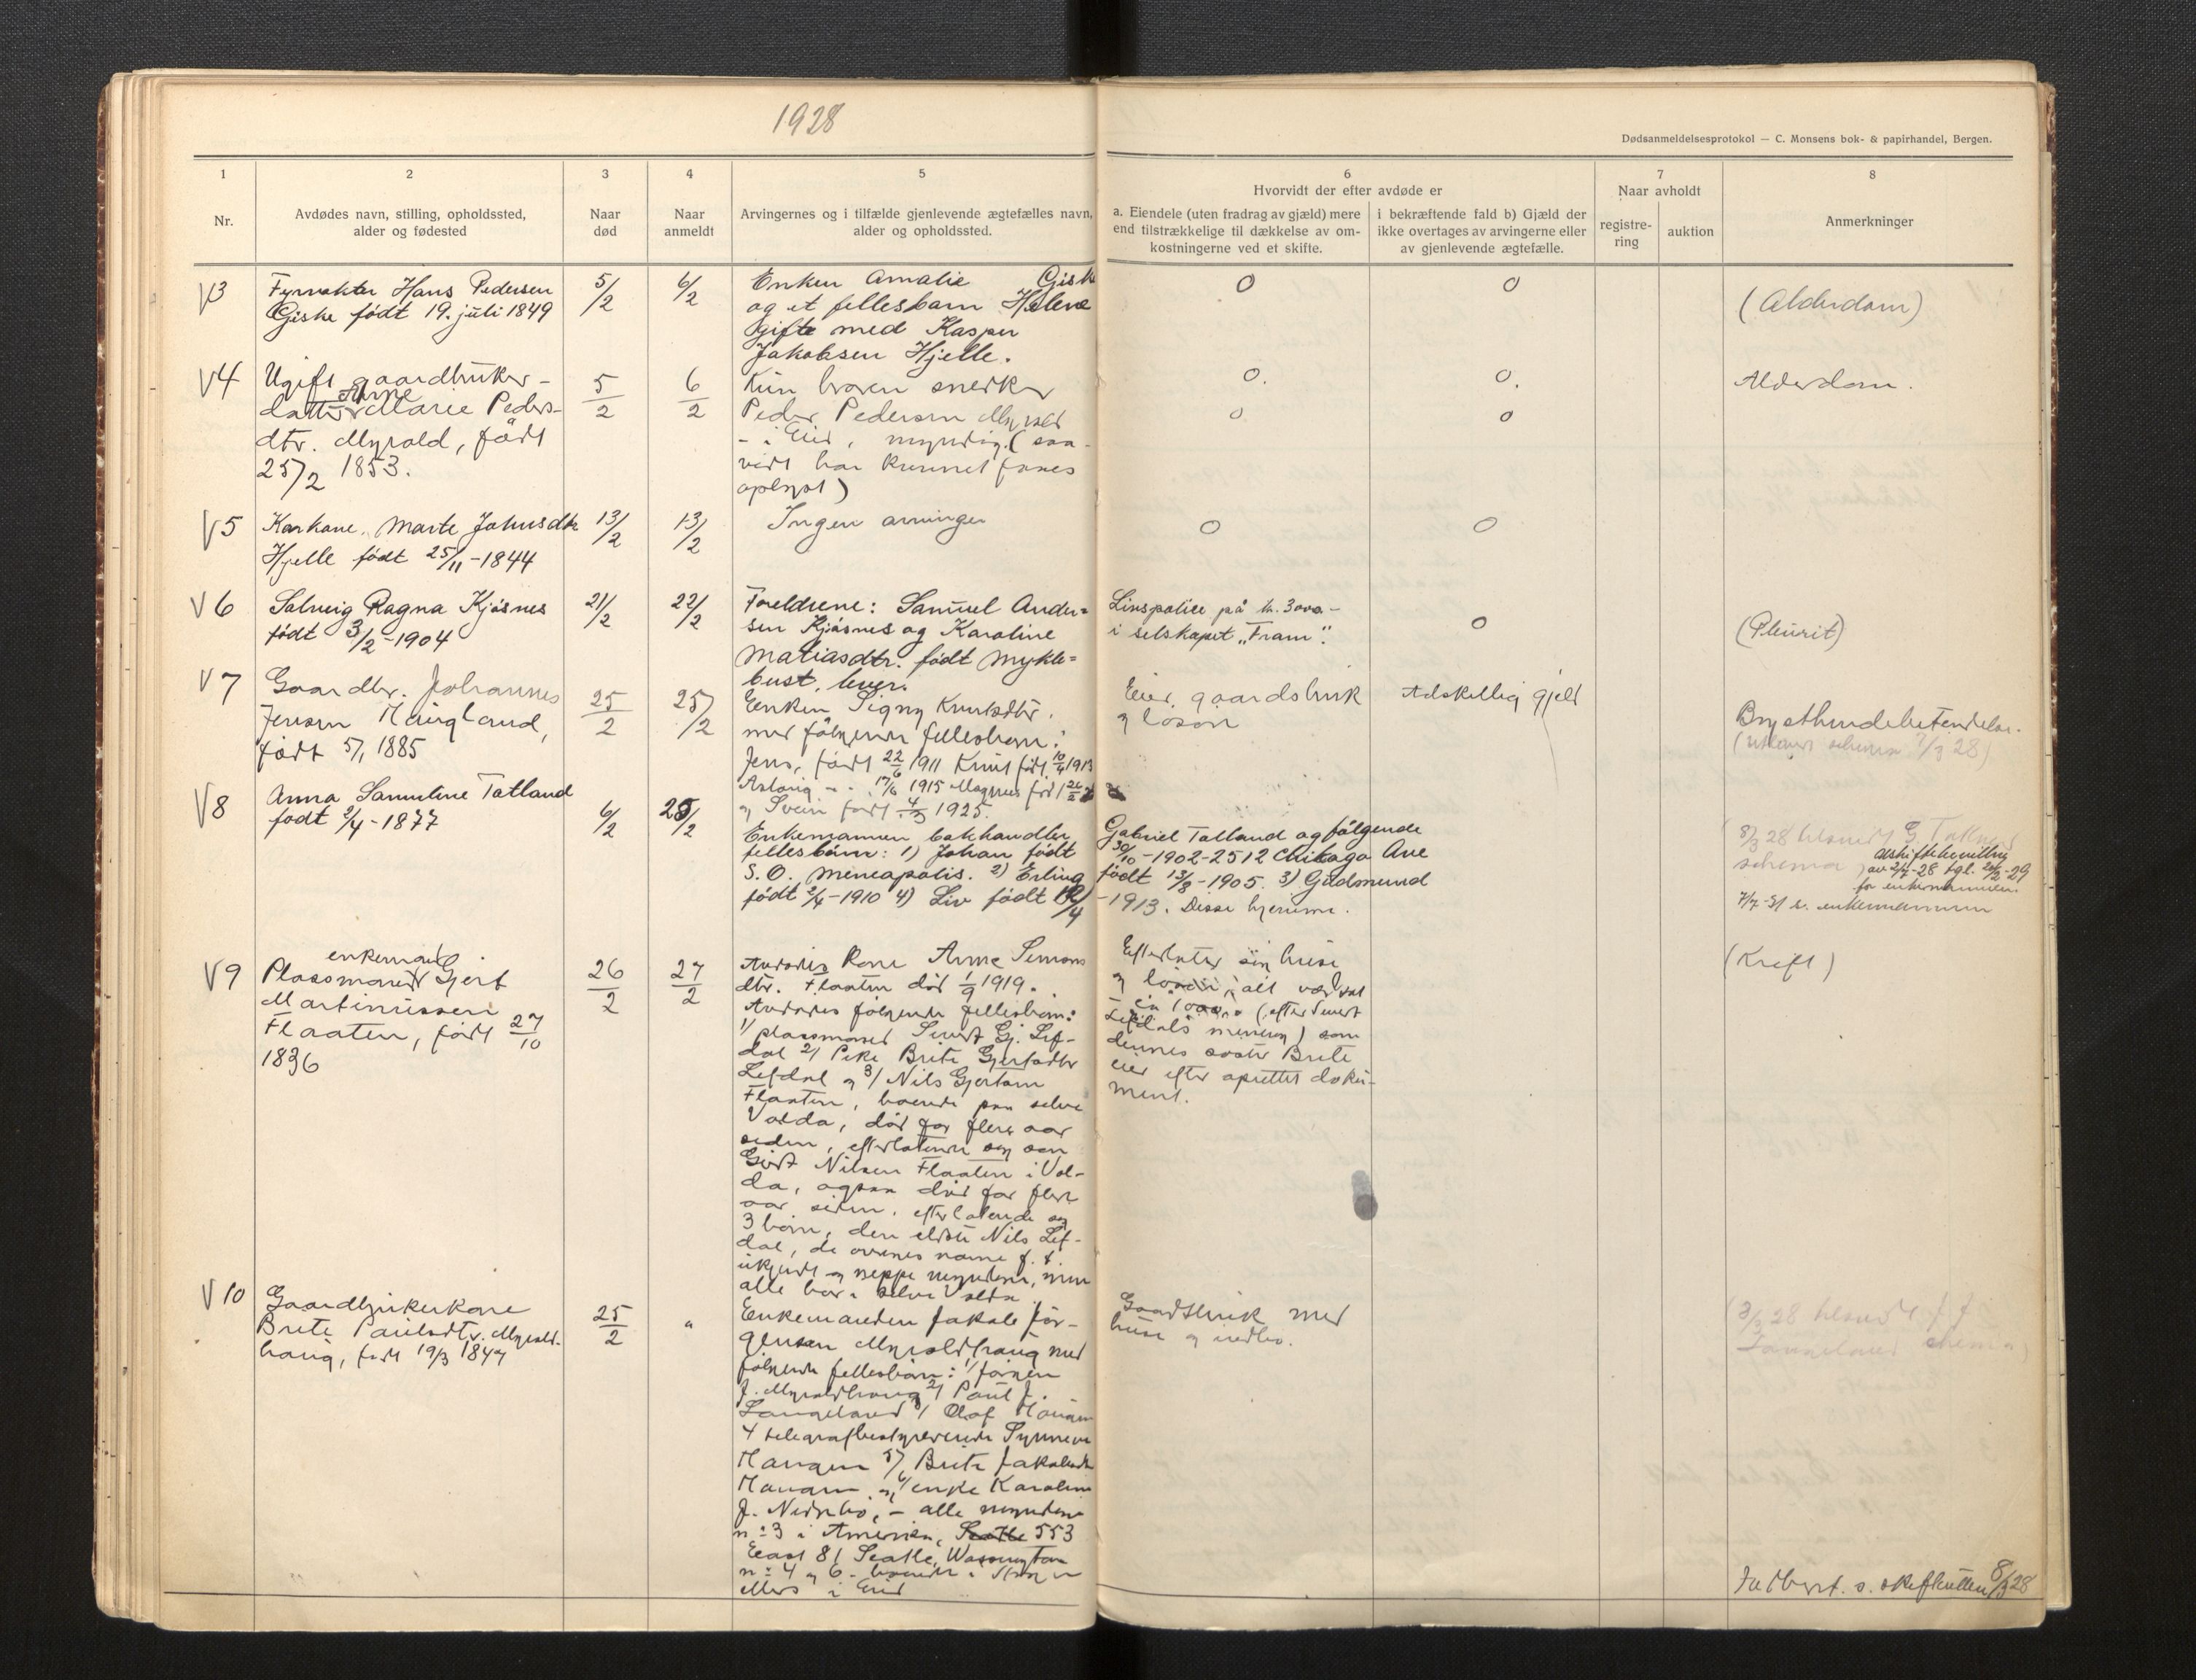 1928
Dødsanmeldelsesprotokol — C. Monsens bok- & papirhandel, Bergen.
1
2
3
4
5
6
7
8
Nr.
Avdødes navn, stilling, opholdssted,
alder og fødested
Naar
død
Naar
anmeldt
Arvingernes og i tilfælde gjenlevende ægtefælles navn,
alder og opholdssted.
Hvorvidt der efter avdøde er
a. Eiendele (uten fradrag av gjæld) mere
end tilstrækkelige til dækkelse av om-
kostningerne ved et skifte.
i bekræftende fald b) Gjæld der
ikke overtages av arvingerne eller
av gjenlevende ægtefælle.
Naar avholdt
registre-
ring
auktion
Anmerkninger
V3
Fyrvakter Hans Pedersen
Giske født 19. juli 1849
5/2
6/2
Enken Amalie Giske
og et fellesbarn Helene
gifte med Kasper
Jakobsen Hjelle.
0
0
(Alderdom)
V4
Ugift gaardbruker-
datter Anne Marie Peders-
dtr. Myrold, født
25/2 1853.
5/2
6/2
Kun broren snekker
Peder Pedersen Myrold
- i Eid, myndig. (saa-
vidt har kunnet fanes
oplyst)
0.
0.
0
0
Alderdom.
V5
Karkone. Marte Johnsdtr
Hjelle født 25/11-1844
13/2
13/2
Ingen arvinger
0
0
V6
Solveig Ragna Kjøsnes
født 3/2-1904
21/2
22/2
Foreldrene: Samuel Ander=
sen Kjøsnes og Karoline
Matiasdtr. født Mykle=
bust, lever.
Livspolice på kr. 3000.-
i selskapet „Fram".
0
(Pleurit)
V7
Gaardbr. Johannes
Jensen Haugland,
født 5/1 1885
25/2
25/2
Enken Signy Knutsdtr.
med følgende fellesbarn:
Jens, født 22/6 1911 Knut født 10/4 1913
17/6 1915 Magnus født 26/2
og Svein født 4/3 1925.
Eier gaardsbruk
og løsøre
Adskillig gjeld
Brysthindebetendelse.
V8
Anna Samuline Tatland
født 2/4-1877
6/2
25/2
Enkemannen bokhandler
Gabriel Tatland og følgende
fellesbarn: 1) Johan født
30/10-1902-2512 Chikago Ave
S. O. Meneapolis. 2) Erling
født 13/8-1905. 3) Gudmund
født 2/4-1910 4) Liv født 12/4
-1913. Desse hjemme.
schema
Uskiftebevilling
av 2/7-28 tgl. 20/2-29
for enkemannen
7/7-31 s. enkemannen
V9
enkemand
Plassmand Gjert
Martinussen
Flaaten, født 27/10
1836
26/2
27/2
Avdødes kone Anne Simons
dtr. Flaaten død 1/9 1919.
Avdødes følgende fellesbarn:
1/ plassmand Sivert Gj. Lef-
dal 2/ Pike Brite Gjertsdtr
Lefdal og 3/ Nils Gjertsen
Flaaten, boende paa selve
Volda, død for flere aar
siden, efterlatende sig søn
Gjert Nilsen Flaaten i Vol-
da, ogsaa død for flere
aar siden, efterlatende sig
3 born, den eldste Nils Lef-
dal, de øvriges navne f. t.
ukjendt og neppe myndige, men
alle bor i selve Volda
Efterlater sig huse
og løsøre, alt verdsat
ca 1000,- (efter Sivert
Lefdals mening) som
dennes søster Brite
eier efter oprettet doku-
ment.
(Kreft)
V10
Gaardbrukerkone
Brite Paulsdtr. Myrold-
haug, født 19/3 1847
25/2
"
Enkemanden Jakob Jør-
gensen Myroldhaug med
følgende fellesbarn: 1/ Jørgen
J. Myroldhaug 2/ Paul J.
Langeland 3/ Olaf Haugen
4 telegrafbestyrerinde Synneve
Haugen 5/ Brite Jakobsdtr
Haugen og 6/ enke Karoline
J. Nedrebø, - alle myndige
nr 3 i Amerika, Seattle 553
East 81 Seatle, Wassington
nr 4 og 6 boende i
ellers i Eid
Gaardsbruk med
huse og indbo.
8/3 28
Langeland schema)
Indberet. s. skifteretten 8/3 28